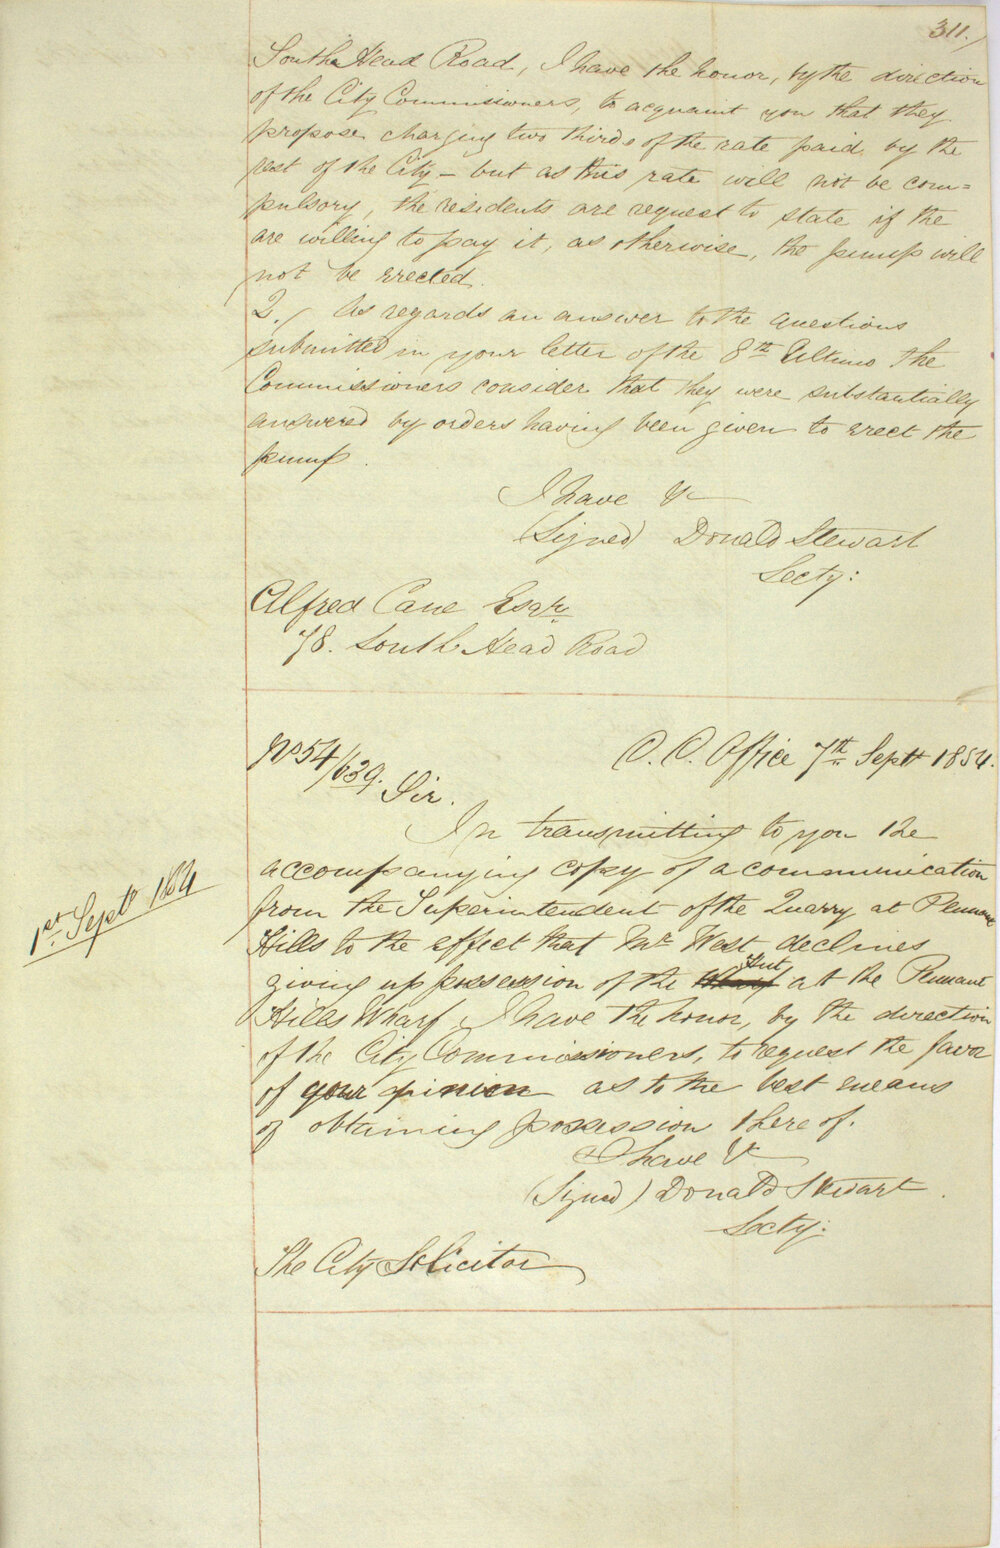 311.
South Head Road, I have the honor, by the direction
of the City Commissioners, to acquaint you that they
propose charging two thirds of the rate paid by the
rest of the City – but as this rate will not be com=
pulsory, the residents are request to state if the
are willing to pay it, as otherwise, the pump will
not be erected.
2./ As regards an answer to the questions
submitted in your letter of the 8th Ultimo the
Commissioners consider that they were substantially
answered by orders having been given to erect the
pump.
I have &c
(Signed) Donald Stewart
Secty:
Alfred Cane Esqr
78. South Head Road
No 54/639.
C. C. Office 7th Sept 1854.
Sir.
1st Sept 1854
In transmitting to you the
accompanying copy of a communication
from the Superintendent of the Quarry at Pennant
Hills to the effect that Mr West declines
giving up possession of the Wharf Hut at the Pennant
Hills Wharf, I have the honor, by the direction
of the City Commissioners, to request the favor
of your opinion as to the best means
of obtaining possession thereof.
I have &c
(Signed) Donald Stewart.
Secty:
The City Solicitor